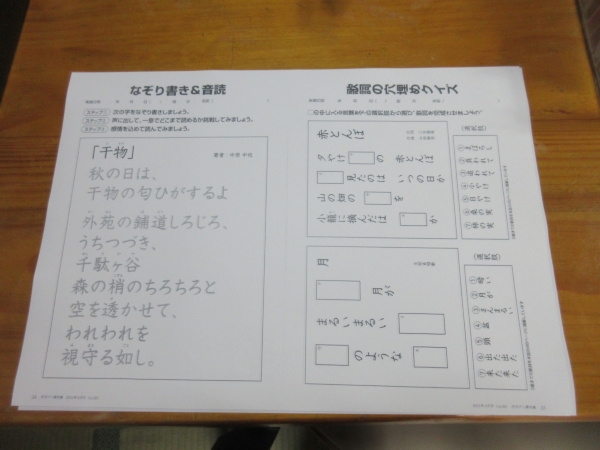 なぞり書き&音読
ステップ1 次の字をなぞり書きしましょう。
ステップ2 声に出して、一息でどこまで読めるか挑戦してみましょう。
ステップ3 感情を込めて読んでみましょう。
「干物」
著者:中原 中也
秋の日は、
干物の匂ひがするよ
外苑の舗道しろじろ、
うちつづき、
千駄ヶ谷
森の梢のちろちろと
空を透かせて、
われわれを
視守る如し。
歌詞の穴埋めクイズ
赤とんぼ
夕やけ の 赤とんぼ
見たのは いつの日か
山の畑の を
小籠に摘んだは か
選択肢
①まぼろし
②負われて
③追われて
④小やけ
⑤日やけ
⑥桑の実
⑦柿の実
月
月が
まるいまるい
のような
選択肢
①暗い
②月が
③まんまるい
④盆
⑤顔
⑥出た出た
⑦来た来た